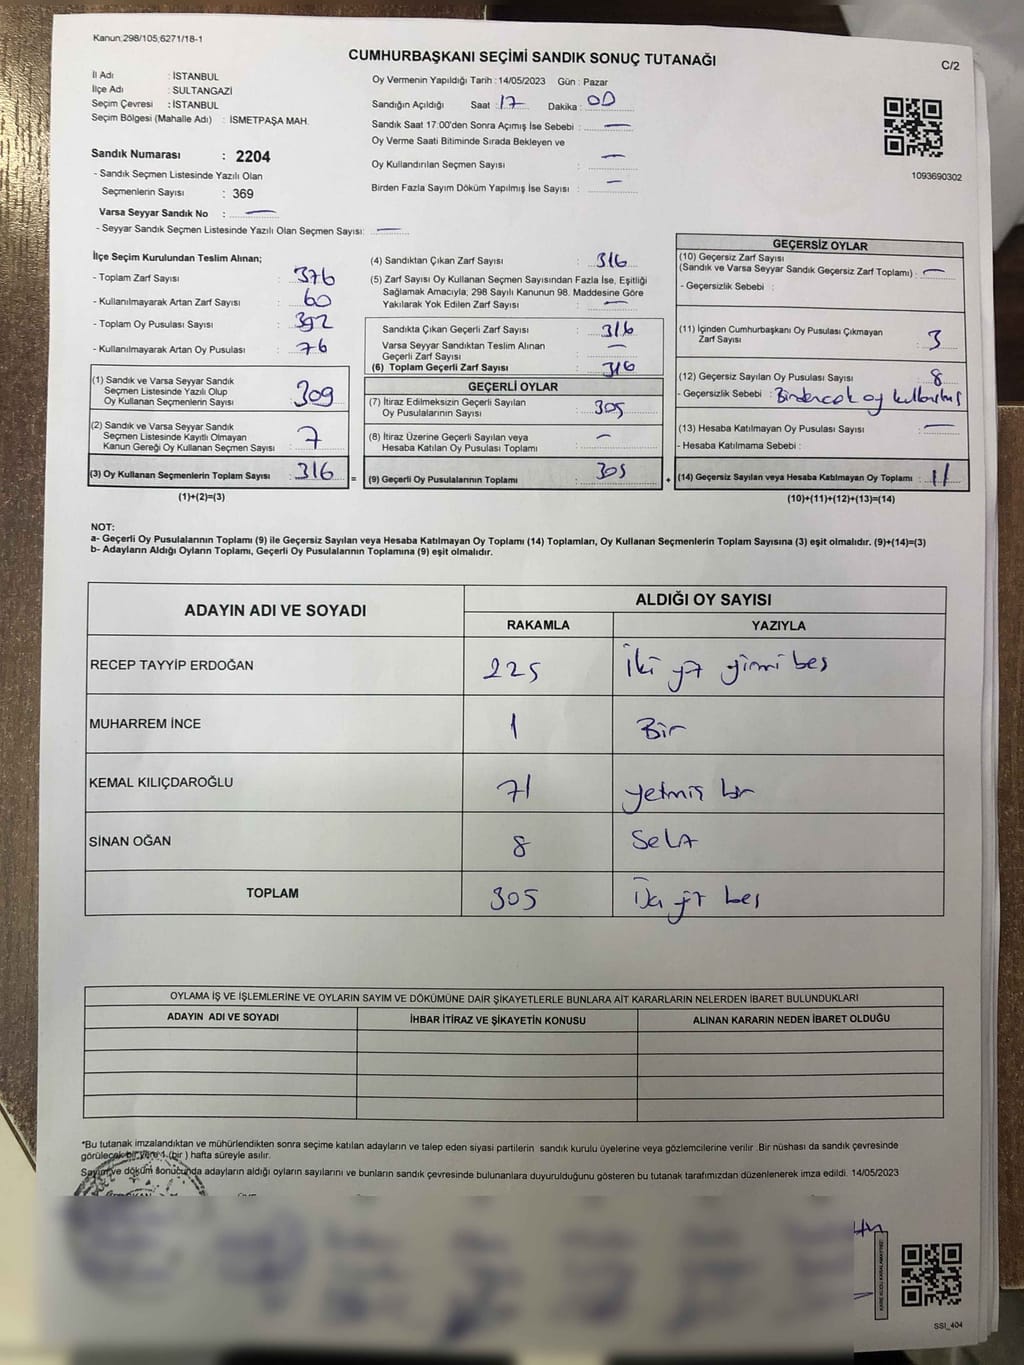 Kanun;298/105;6271/18-1
CUMHURBAŞKANI SEÇİMİ SANDIK SONUÇ TUTANAĞI
C/2
İl Adı : İSTANBUL
İlçe Adı : SULTANGAZİ
Seçim Çevresi : İSTANBUL
Seçim Bölgesi (Mahalle Adı) : İSMETPAŞA MAH.
Sandık Numarası : 2204
- Sandık Seçmen Listesinde Yazılı Olan
Seçmenlerin Sayısı : 369
Varsa Seyyar Sandık No : —
- Seyyar Sandık Seçmen Listesinde Yazılı Olan Seçmen Sayısı: —
Oy Vermenin Yapıldığı Tarih : 14/05/2023 Gün : Pazar
Sandığın Açıldığı Saat : 17 Dakika : 00
Sandık Saat 17:00'den Sonra Açımış İse Sebebi : —
Oy Verme Saati Bitiminde Sırada Bekleyen ve
Oy Kullandırılan Seçmen Sayısı : —
Birden Fazla Sayım Döküm Yapılmış İse Sayısı : —
1093690302
İlçe Seçim Kurulundan Teslim Alınan;
- Toplam Zarf Sayısı : 376
- Kullanılmayarak Artan Zarf Sayısı : 60
- Toplam Oy Pusulası Sayısı : 392
- Kullanılmayarak Artan Oy Pusulası : 76
(1) Sandık ve Varsa Seyyar Sandık
Seçmen Listesinde Yazılı Olup
Oy Kullanan Seçmenlerin Sayısı : 309
(2) Sandık ve Varsa Seyyar Sandık
Seçmen Listesinde Kayıtlı Olmayan
Kanun Gereği Oy Kullanan Seçmen Sayısı : 7
(3) Oy Kullanan Seçmenlerin Toplam Sayısı : 316
(1)+(2)=(3)
(4) Sandıktan Çıkan Zarf Sayısı : 316
(5) Zarf Sayısı Oy Kullanan Seçmen Sayısından Fazla İse, Eşitliği
Sağlamak Amacıyla, 298 Sayılı Kanunun 98. Maddesine Göre
Yakılarak Yok Edilen Zarf Sayısı : —
Sandıkta Çıkan Geçerli Zarf Sayısı : 316
Varsa Seyyar Sandıktan Teslim Alınan
Geçerli Zarf Sayısı : —
(6) Toplam Geçerli Zarf Sayısı : 316
GEÇERLİ OYLAR
(7) İtiraz Edilmeksizin Geçerli Sayılan
Oy Pusulalarının Sayısı : 305
(8) İtiraz Üzerine Geçerli Sayılan veya
Hesaba Katılan Oy Pusulası Toplamı : —
= (9) Geçerli Oy Pusulalarının Toplamı : 305 +
GEÇERSİZ OYLAR
(10) Geçersiz Zarf Sayısı
(Sandık ve Varsa Seyyar Sandık Geçersiz Zarf Toplamı) : —
- Geçersizlik Sebebi :
(11) İçinden Cumhurbaşkanı Oy Pusulası Çıkmayan
Zarf Sayısı : 3
(12) Geçersiz Sayılan Oy Pusulası Sayısı : 8
- Geçersizlik Sebebi : Birden çok oy
(13) Hesaba Katılmayan Oy Pusulası Sayısı : —
- Hesaba Katılmama Sebebi :
(14) Geçersiz Sayılan veya Hesaba Katılmayan Oy Toplamı : 11
(10)+(11)+(12)+(13)=(14)
NOT:
a- Geçerli Oy Pusulalarının Toplamı (9) ile Geçersiz Sayılan veya Hesaba Katılmayan Oy Toplamı (14) Toplamları, Oy Kullanan Seçmenlerin Toplam Sayısına (3) eşit olmalıdır. (9)+(14)=(3)
b- Adayların Aldığı Oyların Toplamı, Geçerli Oy Pusulalarının Toplamına (9) eşit olmalıdır.
ADAYIN ADI VE SOYADI ALDIĞI OY SAYISI
RAKAMLA YAZIYLA
RECEP TAYYİP ERDOĞAN 225 İki yz yirmi beş
MUHARREM İNCE 1 Bir
KEMAL KILIÇDAROĞLU 71 yetmiş bir
SİNAN OĞAN 8 Sekiz
TOPLAM 305 yz beş
OYLAMA İŞ VE İŞLEMLERİNE VE OYLARIN SAYIM VE DÖKÜMÜNE DAİR ŞİKAYETLERLE BUNLARA AİT KARARLARIN NELERDEN İBARET BULUNDUKLARI
ADAYIN ADI VE SOYADI İHBAR İTİRAZ VE ŞİKAYETİN KONUSU ALINAN KARARIN NEDEN İBARET OLDUĞU
*Bu tutanak imzalandıktan ve mühürlendikten sonra seçime katılan adayların ve talep eden siyasi partilerin sandık kurulu üyelerine veya gözlemcilerine verilir. Bir nüshası da sandık çevresinde
görülecek bir yere 1 (bir ) hafta süreyle asılır.
Sayım ve döküm sonucunda adayların aldığı oyların sayılarını ve bunların sandık çevresinde bulunanlara duyurulduğunu gösteren bu tutanak tarafımızdan düzenlenerek imza edildi. 14/05/2023
KARE KODU KARALAMAYINIZ!
SSI_404